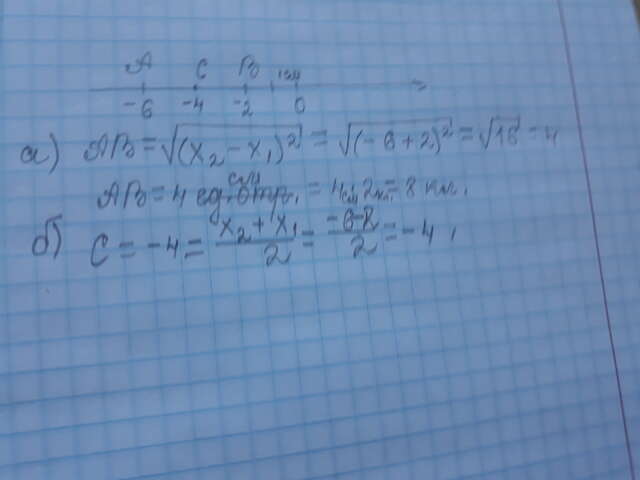 A C B 1см
-6 -4 -2 0
а) AB = √(x₂ - x₁)² = √(-6+2)² = √16 = 4
AB = 4 ед. отр. = 4 · 2 = 8 км.
б) C = -4 = (x₂ + x₁)/2 = (-6-2)/2 = -4,